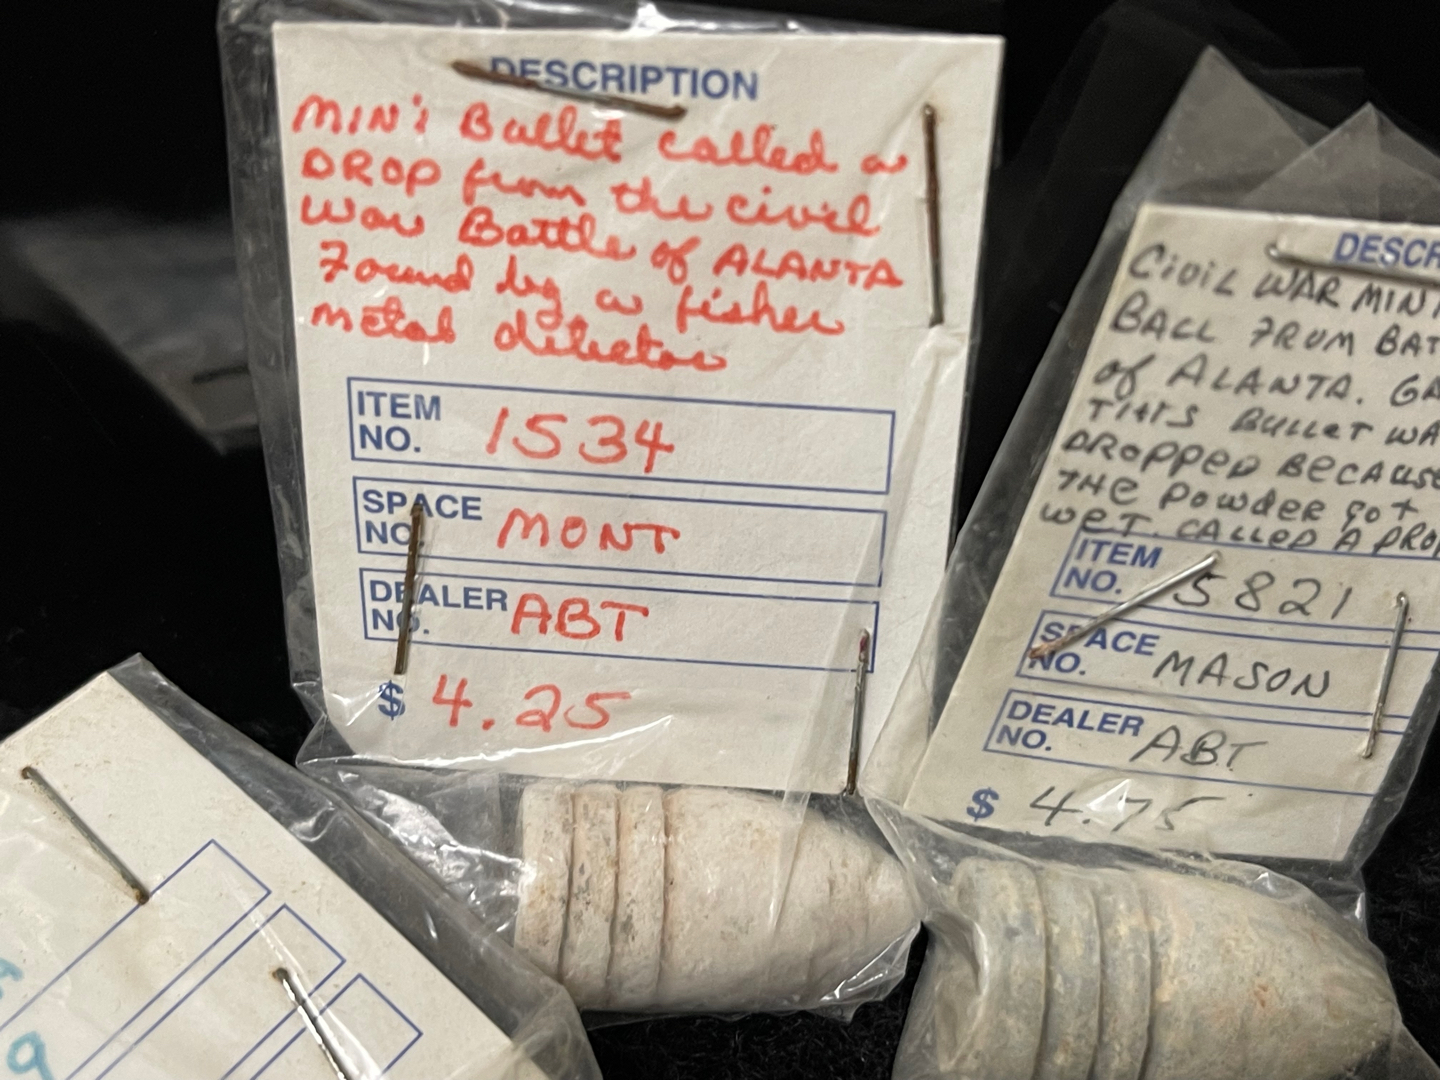 DESCRIPTION
MINi Bullet called a
DROP from the civil
War Battle of ALANTA
Found by a fisher
metal detector
ITEM NO. 1534
SPACE NO. MONT
DEALER NO. ABT
$ 4.25
DESCR
CiviL WAR MINI
BALL FROM BAT
of ALANTA. GA
THIS BULLET WA
DROPPED BECAUSE
THE POWDER GOT
WET. CALLED A DROP
ITEM NO. 5821
SPACE NO. MASON
DEALER NO. ABT
$ 4.75